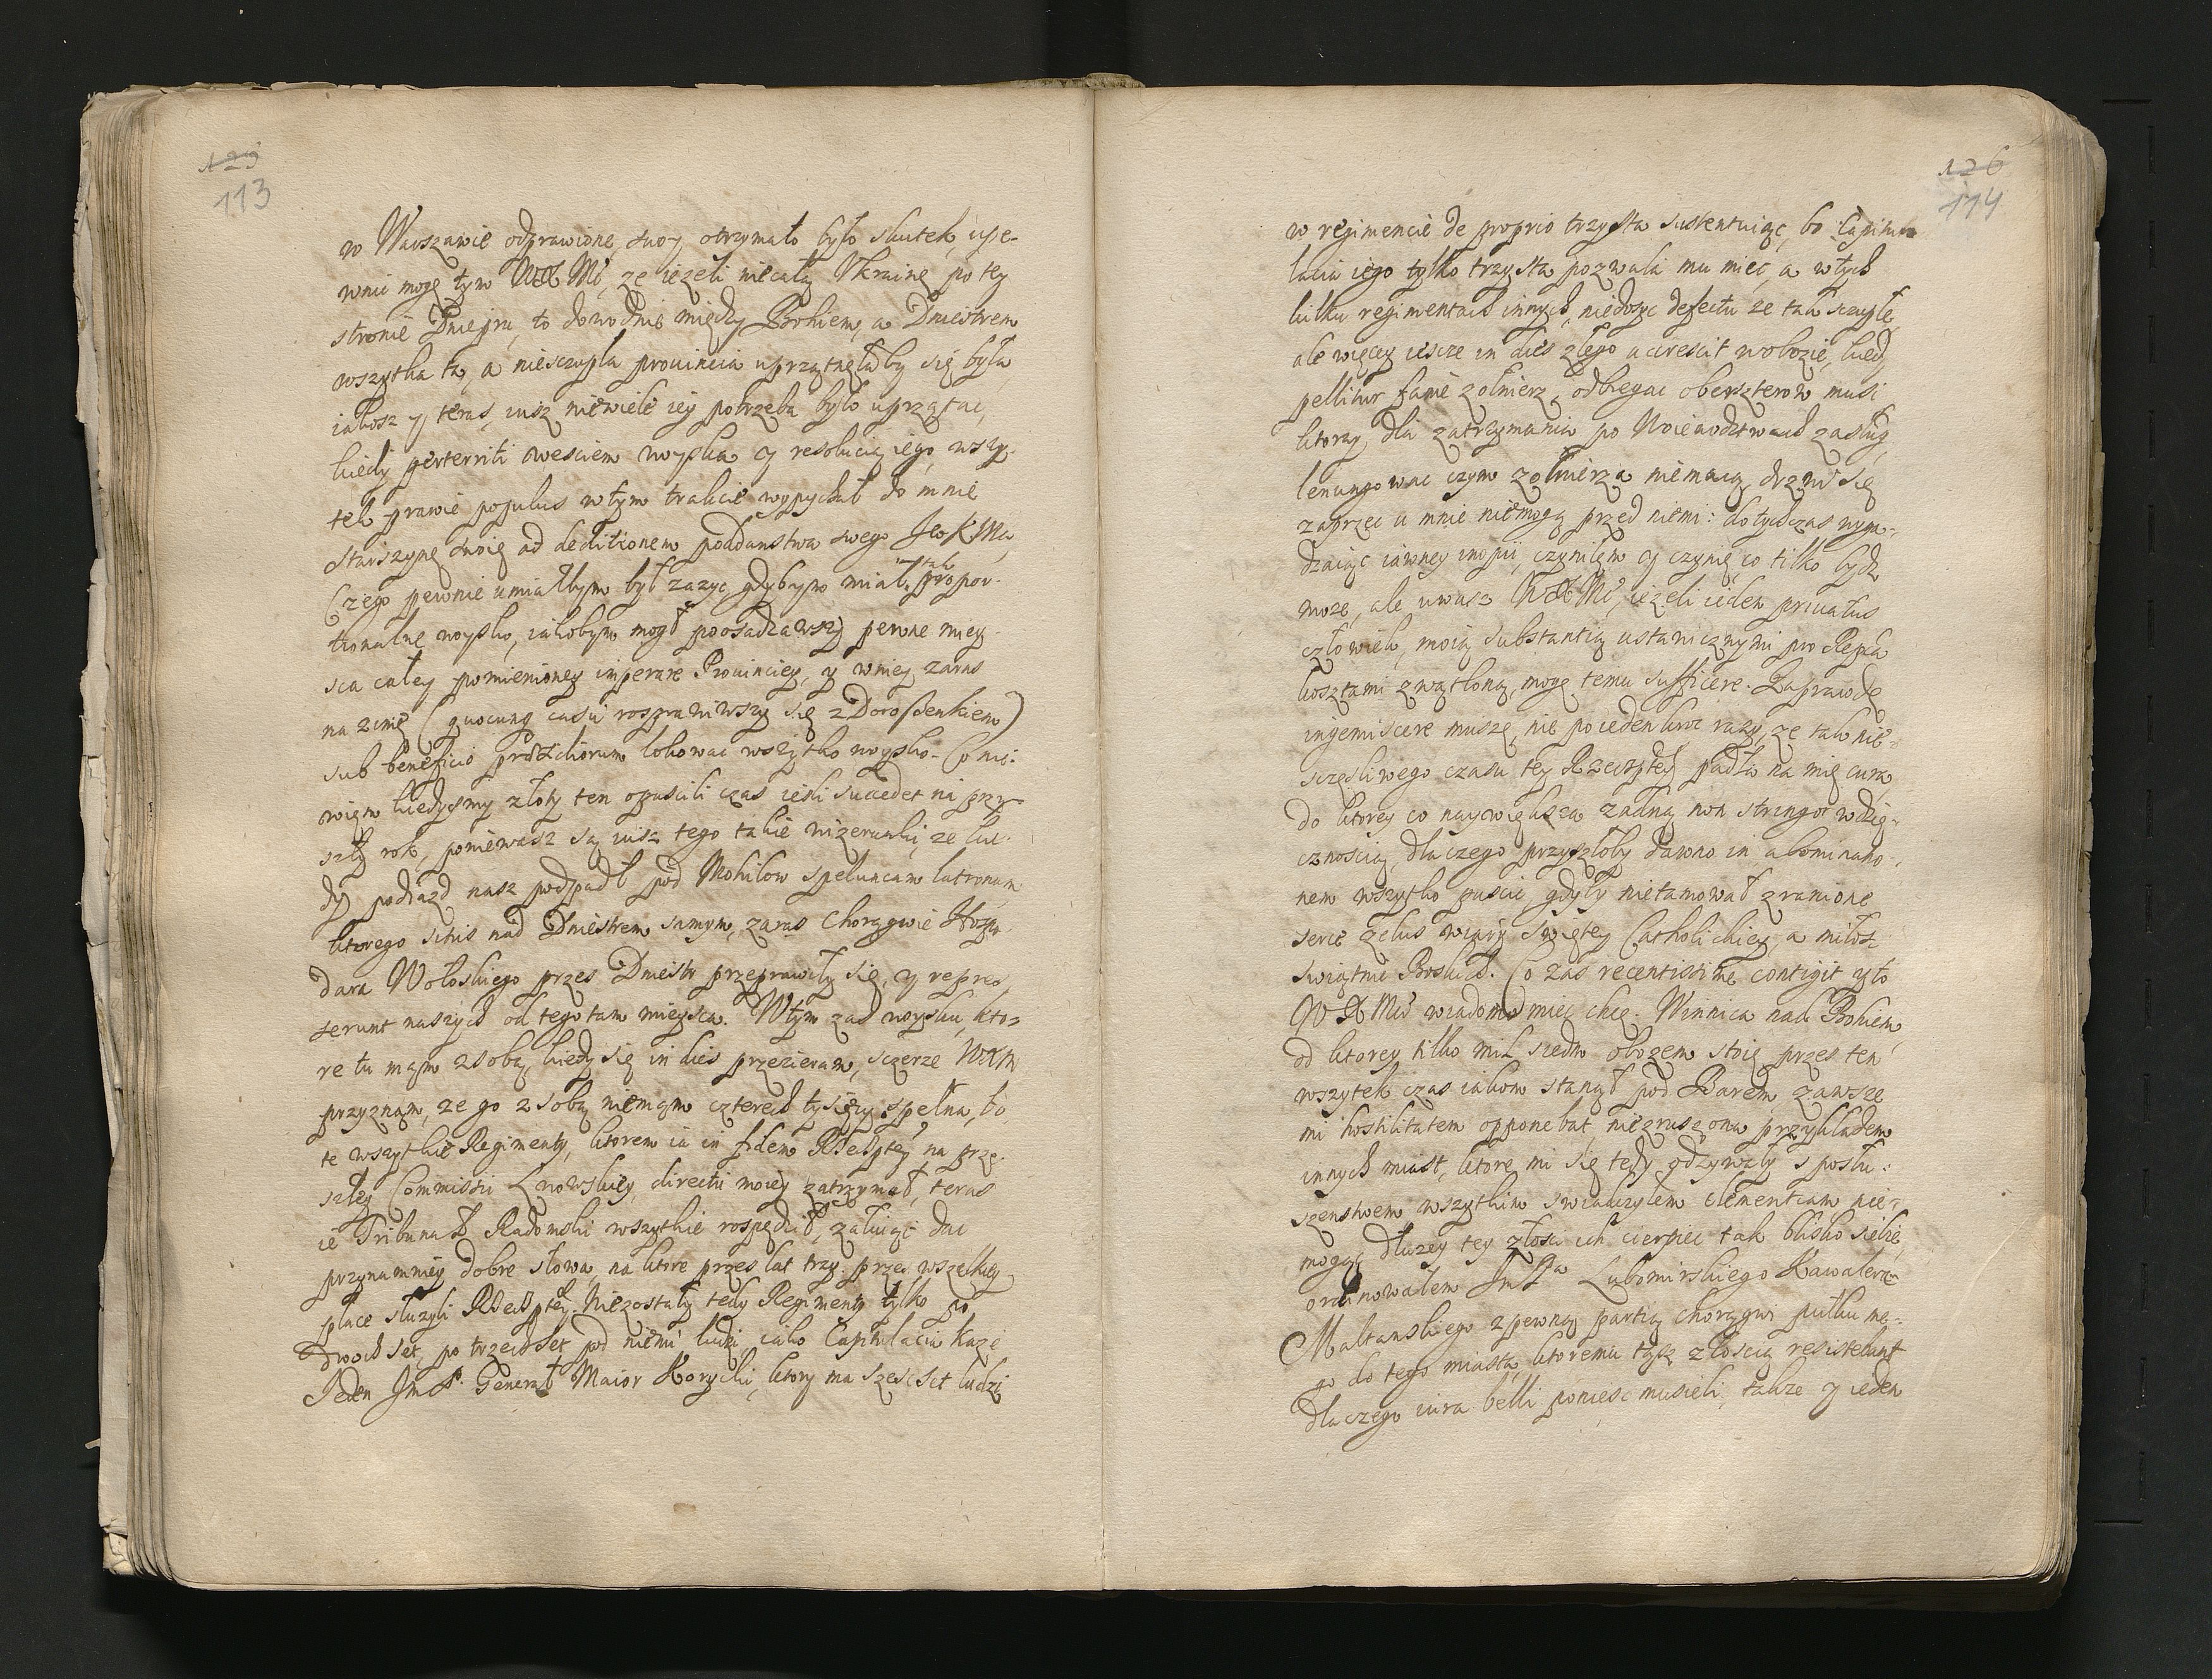 125
113
w Warszawie odprawione, swoy otrzymało było skutek, upe-
wnic mogę tym WXMć, ze iezeli niecałą Vkrainę po tey
stronie Dniepru, to dowodnie między Bohiem, a Dniestrem
wszytka ta, a niesczupła prouincia uprzątnęłaby się była,
iakosz y teras iusz niewiele iey potrzeba było uprzątac,
kiedy perterriti weściem woyska y resolucią iego, wszy-
tek prawie populus wtym trakcie wypychał do mnie
starszynę swoię ad deditionem poddanstwa swego JeoKMci,
Czego pewnie umiałbym był zazyc, gdybym miał tak propor-
tionalne woysko, iakobym mogł poosadzawszy pewne miey-
sca całey pomienioney imperare Prouinciey, y wniey zaras
na zimę (quocunq casu rosprawiwszy się z Doroszenkiem)
sub beneficio præsidiorum lokowac wszytko woysko. Co nie
wiem kiedysmy złoty ten opuscili czas iesli succedet na przy-
szły rok, poniewasz są iusz tego takie wizerunki, ze kie-
dy podiazd nasz podpadł pod Mohilow speluncam latronum
ktorego situs nad Dniestrem samym, zaras Chorągwie Hospo-
dara Wołoskiego przes Dniestr przeprawiły się, y repres-
serunt naszych od tego tam mieysca. Wtym zas woysku, kto-
re tu mąm zsobą, kiedy się in dies przezieram, sczerze WXM
przyznam, ze go zsobą niemąm czterech tysięcy spełna, bo
te wszytkie Regimenty, ktorem ia in fidem RzeczPtey na prze-
szłey Commissii Lwowskiey, directii moiey zatrzymał, teras
ie Tribunał Radomski wszytkie rospędził, załuiąc dac
przynamniey dobre słowa, na ktore przes lat trzy præci wszelkiey
place służyli RzeczPtey. Niezostały tedy Regimenty tylko po
dwuch set, po trzech set, pod niemi ludzi iako Capitulacia kaze
Jeden JmP. Generał Maior Korycki, ktory ma szescset ludzi
126
114
w regimencie de proprio trzysta sustentuiąc, bo Capitu-
lacia iego tylko trzysta pozwala mu miec, a wtych
kilku regimentach innych, niedosyc defectu ze tak sczupłe,
ale więcey iescze in dies złego accrescit wobozie, kiedy
pellitur fame zołnierz, odbiegac oberszterow musi
ktorzy dla zatrzymania po Woiewodztwach zasług,
lenungowac czym zołnierza nie maią, drzwi się
zaprzec u mnie niemogą przed niemi: dotychczas wyga-
dzaiąc iawney inopii, czyniłem y czynię co tilko bydz
moze, ale uwasz WXMć, iezeli ieden priuatus
człowiek, moią substantią ustawicznymi pro Repca
kosztami zwątloną, mogę temu sufficere. Zaprawdę
ingemiscere muszę, nie po iedenkroc razy, ze tak nie-
sczęsliwego czasu tey Rzeczptey padła na mię cura,
do ktorey co naywiększa zadną non stringor wdzię-
cznoscią dlaczego przyszłoby dawno in abominatio-
nem wszytko puscic, gdyby nietamował zranione
serce zelus wiary swiętey Catholickiey, a miłosc
swiątnic Boskich. Co zas recentissime contigit y to
WXMci wiadomo miec chcę. Winnica nad Bohiem,
od ktorey kilko mil siedm obozem stoię przes ten
wszytek czas iakom stanął pod Barem zawsze
mi hostilitatem opponebat, nieruszona przykładem
innych miast, ktore mi się tedy odzywały s posłu-
szenstwem wszytkim swiadczyłem clementiam, nie-
mogąc dłuzey tey złosci ich cierpiec tak blisko siebie,
ordinowałem JmPa Lubomirskiego Kawalera
Maltanskiego zpewną partią chorągwi pułku me-
go do tego miasta, ktoremu tąsz złoscią resistebant
dlaczego iura belli poniesc musieli, takze y ieden